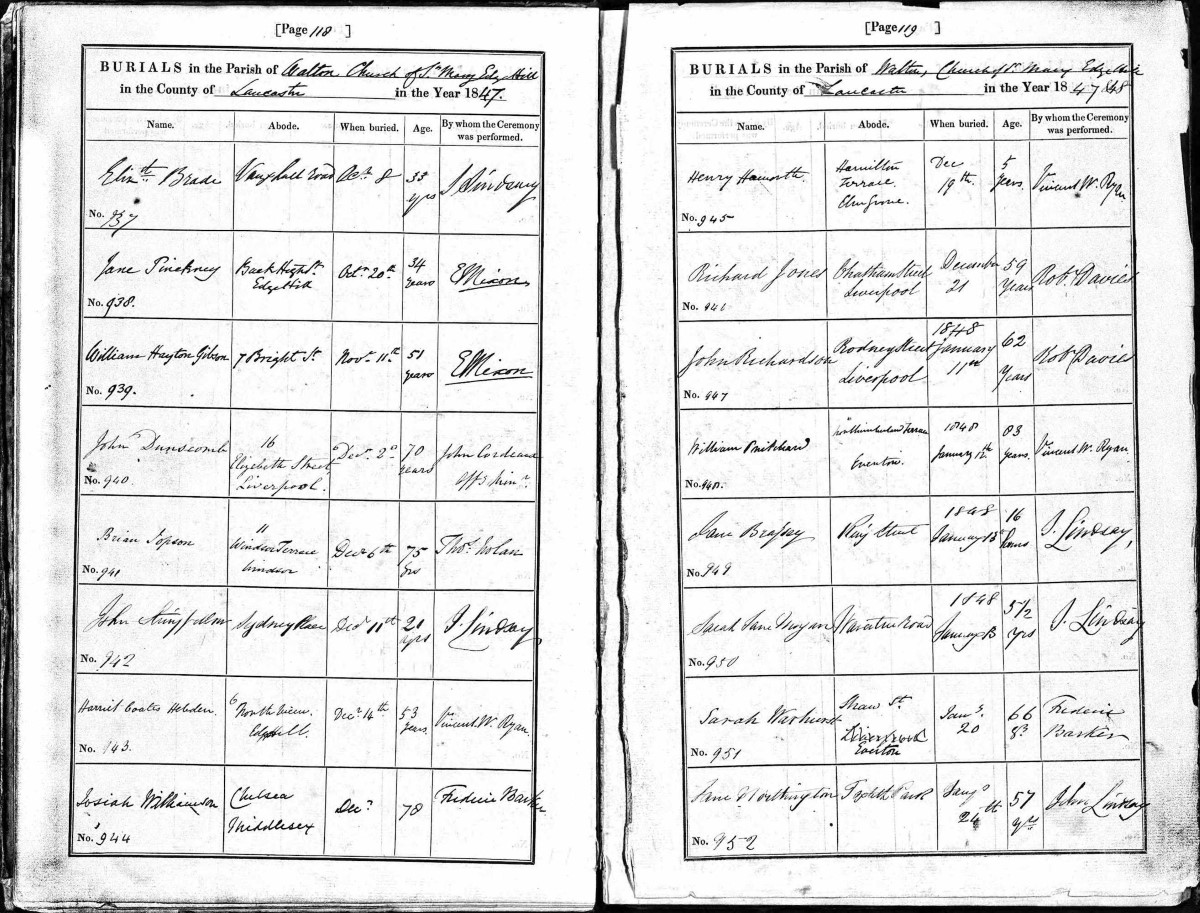 [Page 118 ]
BURIALS in the Parish of Walton Church of St Mary Edge Hill
in the County of Lancaster in the Year 1847.
Name. Abode. When buried. Age. By whom the Ceremony was performed.
Elizth Brade Vauxhall Road Oct 8 33 yrs J Lindsay
No. 937
Jane Pinckney Back High St Edge Hill Octr 20th 34 years E Mixon
No. 938.
William Hayton Gibson 7 Bright St Novr 11th 51 years E Mixon
No. 939.
John Dunscomb 16 Elizabeth Street Liverpool. Decr 2d 70 years John Offg Minr
No. 940.
Brian Jopson 11 Windsor Terrace Windsor Decr 6th 75 yrs Thos Nolan
No. 941
John Decr 11th 21 yrs J. Lindsay
Sydney Place
No. 942
Harriet Coates Hebden. 6 North View. Edgehill. Decr 14th 53 years. Vincent W. Ryan
No. 943.
Josiah Williamson Chelsea Middlesex Decr 78 Frederic Barker
No. 944
[Page 119 ]
BURIALS in the Parish of Walton, Church of St Mary Edge Hill
in the County of Lancaster in the Year 1847 & 48
Name. Abode. When buried. Age. By whom the Ceremony was performed.
Henry Haworth. Hamilton Terrace. Elm Grove. Dec 19th 5 years. Vincent W. Ryan
No. 945
Richard Jones Chatham Street Liverpool December 21 59 Years Robt Davies
No. 946
John Richardson Rodney Street Liverpool 1848 January 11th 62 Years Robt Davies
No. 947
William Pritchard Northumberland Terrace Everton. 1848 January 12th 83 years. Vincent W. Ryan.
No. 948.
Jane Brassey King Street 1848 January 16 J. Lindsay,
No. 949
Sarah Jane Morgan Wavertree Road 1848 January 5 1/2 yrs J. Lindsay
No. 950
Sarah Warhurst Shaw St Liverpool Everton Jany 20 66 Frederic Barker
No. 951
Jane Worthington Toxteth Park Jany 24th 57 yrs John Lindsay
No. 952